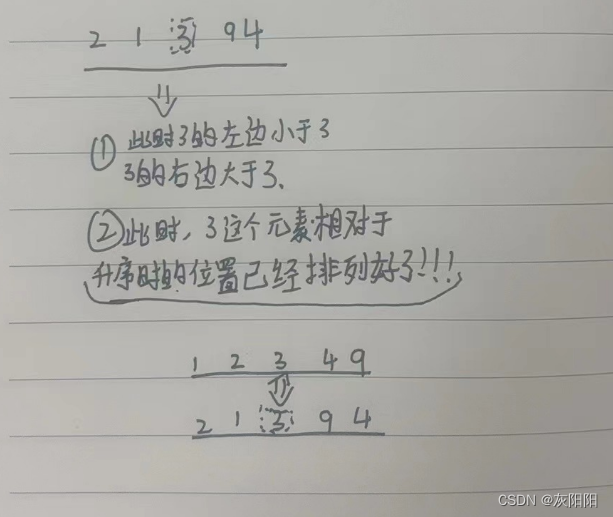 2 1 3 9 4
① 此时3的左边小于3
3的右边大于3.
②此时，3这个元素相对于
升序时的位置已经排列好了!!!
1 2 3 4 9
2 1 3 9 4
CSDN @灰阳阳